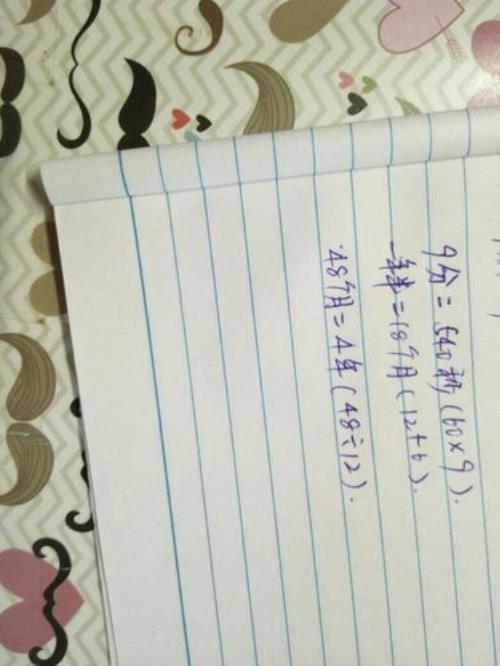 9分=540秒(60×9).
一年半=18个月(12+6).
48个月=4年(48÷12).